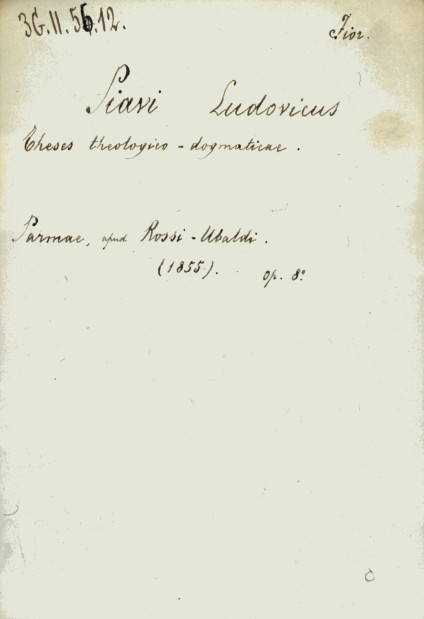 3G.II.56.12.
Fior.
Piavi Ludovicus
Theses theologico-dogmaticae.
Parmae, apud Rossi-Ubaldi.
(1855). op. 8°
C